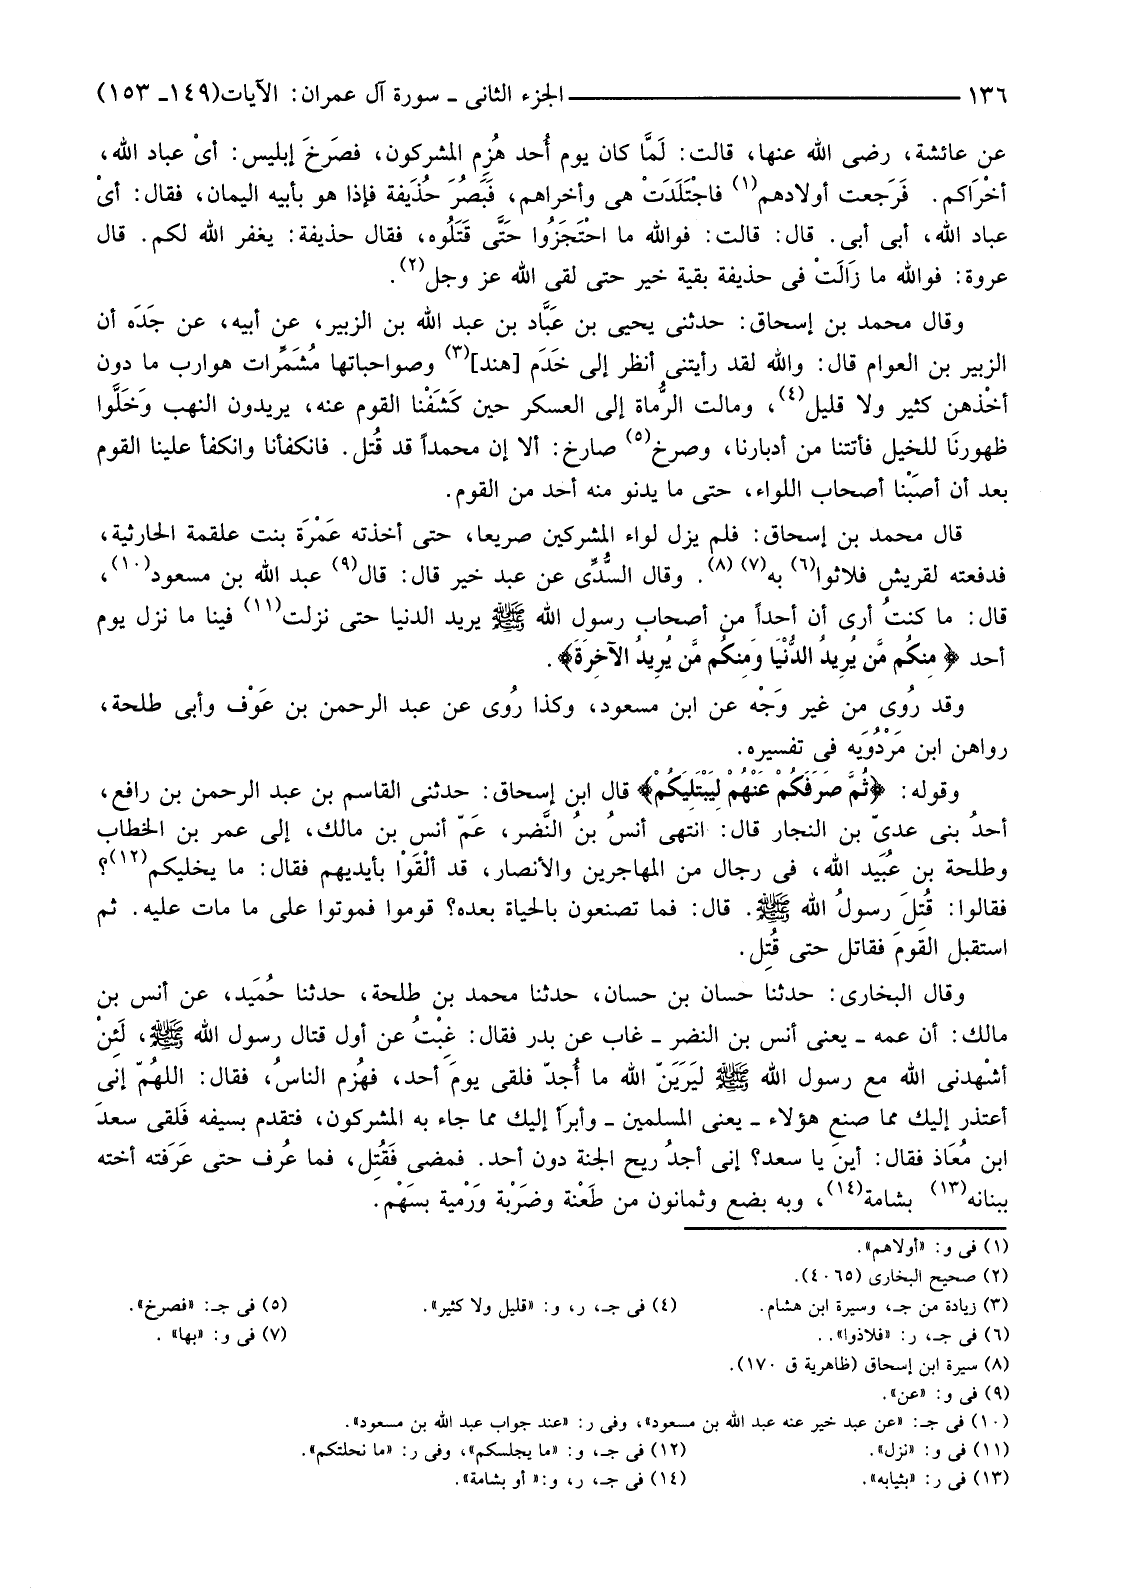 ١٣٦ ـــــــ الجزء الثانى ـ سورة آل عمران: الآيات(١٤٩ـ ١٥٣)
عن عائشة، رضى الله عنها، قالت: لَمَّا كان يوم أُحد هُزِم المشركون، فصَرخَ إبليس: أىْ عباد الله،
أخْرَاكم. فَرَجعت أولادهم(١) فاجْتَلَدَتْ هى وأخراهم، فَبَصُرَ حُذَيفة فإذا هو بأبيه اليمان، فقال: أىْ
عباد الله، أبى أبى. قال: قالت: فوالله ما احْتَجَزُوا حَتَّى قَتَلُوه، فقال حذيفة: يغفر الله لكم. قال
عروة: فوالله ما زَالَتْ فى حذيفة بقية خير حتى لقى الله عز وجل(٢).
وقال محمد بن إسحاق: حدثنى يحيى بن عَبَّاد بن عبد الله بن الزبير، عن أبيه، عن جَدِّه أن
الزبير بن العوام قال: والله لقد رأيتنى أنظر إلى خَدَم [هند](٣) وصواحباتها مُشَمِّرات هوارب ما دون
أخْذهن كثير ولا قليل(٤)، ومالت الرُّماة إلى العسكر حين كَشَفْنا القوم عنه، يريدون النهب وَخَلَّوا
ظهورنَا للخيل فأتتنا من أدبارنا، وصرخ(٥) صارخ: ألا إن محمداً قد قُتل. فانكفأنا وانكفأ علينا القوم
بعد أن أصَبْنا أصحاب اللواء، حتى ما يدنو منه أحد من القوم.
قال محمد بن إسحاق: فلم يزل لواء المشركين صريعا، حتى أخذته عَمْرَة بنت علقمة الحارثية،
فدفعته لقريش فلاثوا(٦) به(٧) (٨). وقال السُّدِّى عن عبد خير قال: قال(٩) عبد الله بن مسعود(١٠)،
قال: ما كنتُ أرى أن أحداً من أصحاب رسول الله ﷺ يريد الدنيا حتى نزلت(١١) فينا ما نزل يوم
أحد ﴿ مِنكُم مَّن يُرِيدُ الدُّنْيَا وَمِنكُم مَّن يُرِيدُ الآخِرَةَ﴾.
وقد رُوى من غير وَجْه عن ابن مسعود، وكذا رُوى عن عبد الرحمن بن عَوْف وأبى طلحة،
رواهن ابن مَرْدُويَه فى تفسيره.
وقوله: ﴿ثُمَّ صَرَفَكُمْ عَنْهُمْ لِيَبْتَلِيَكُمْ﴾ قال ابن إسحاق: حدثنى القاسم بن عبد الرحمن بن رافع،
أحدُ بنى عدىّ بن النجار قال: انتهى أنسُ بنُ النَّضر، عَمّ أنس بن مالك، إلى عمر بن الخطاب
وطلحة بن عُبَيد الله، فى رجال من المهاجرين والأنصار، قد ألْقَوْا بأيديهم فقال: ما يخليكم(١٢)؟
فقالوا: قُتِلَ رسولُ الله ﷺ. قال: فما تصنعون بالحياة بعده؟ قوموا فموتوا على ما مات عليه. ثم
استقبل القومَ فقاتل حتى قُتِل.
وقال البخارى: حدثنا حسان بن حسان، حدثنا محمد بن طلحة، حدثنا حُمَيد، عن أنس بن
مالك: أن عمه ـ يعنى أنس بن النضر ـ غاب عن بدر فقال: غِبْتُ عن أول قتال رسول الله ﷺ، لَئِنْ
أشْهدنى الله مع رسول الله ﷺ ليَرَيَنّ الله ما أُجِدّ فلقى يومَ أحد، فهُزم الناسُ، فقال: اللهُمّ إنى
أعتذر إليك مما صنع هؤلاء ـ يعنى المسلمين ـ وأبرَأ إليك مما جاء به المشركون، فتقدم بسيفه فَلقى سعدَ
ابن مُعَاذ فقال: أينَ يا سعد؟ إنى أجدُ ريح الجنة دون أحد. فمضى فَقُتِل، فما عُرف حتى عَرَفته أخته
ببنانه(١٣) بشامة(١٤)، وبه بضع وثمانون من طَعْنة وضَرْبة وَرْمية بسَهْم.
(١) فى و: «أولاهم».
(٢) صحيح البخارى (٤٠٦٥).
(٣) زيادة من جـ، وسيرة ابن هشام. (٤) فى جـ، ر، و: «قليل ولا كثير». (٥) فى جـ: «فصرخ».
(٦) فى جـ، ر: «فلاذوا». . (٧) فى و: «بها» .
(٨) سيرة ابن إسحاق (ظاهرية ق ١٧٠).
(٩) فى و: «عن».
(١٠) فى جـ: «عن عبد خير عنه عبد الله بن مسعود»، وفى ر: «عند جواب عبد الله بن مسعود».
(١١) فى و: «نزل». (١٢) فى جـ، و: «ما يجلسكم»، وفى ر: «ما نحلتكم».
(١٣) فى ر: «بثيابه». (١٤) فى جـ، ر، و:« أو بشامة».